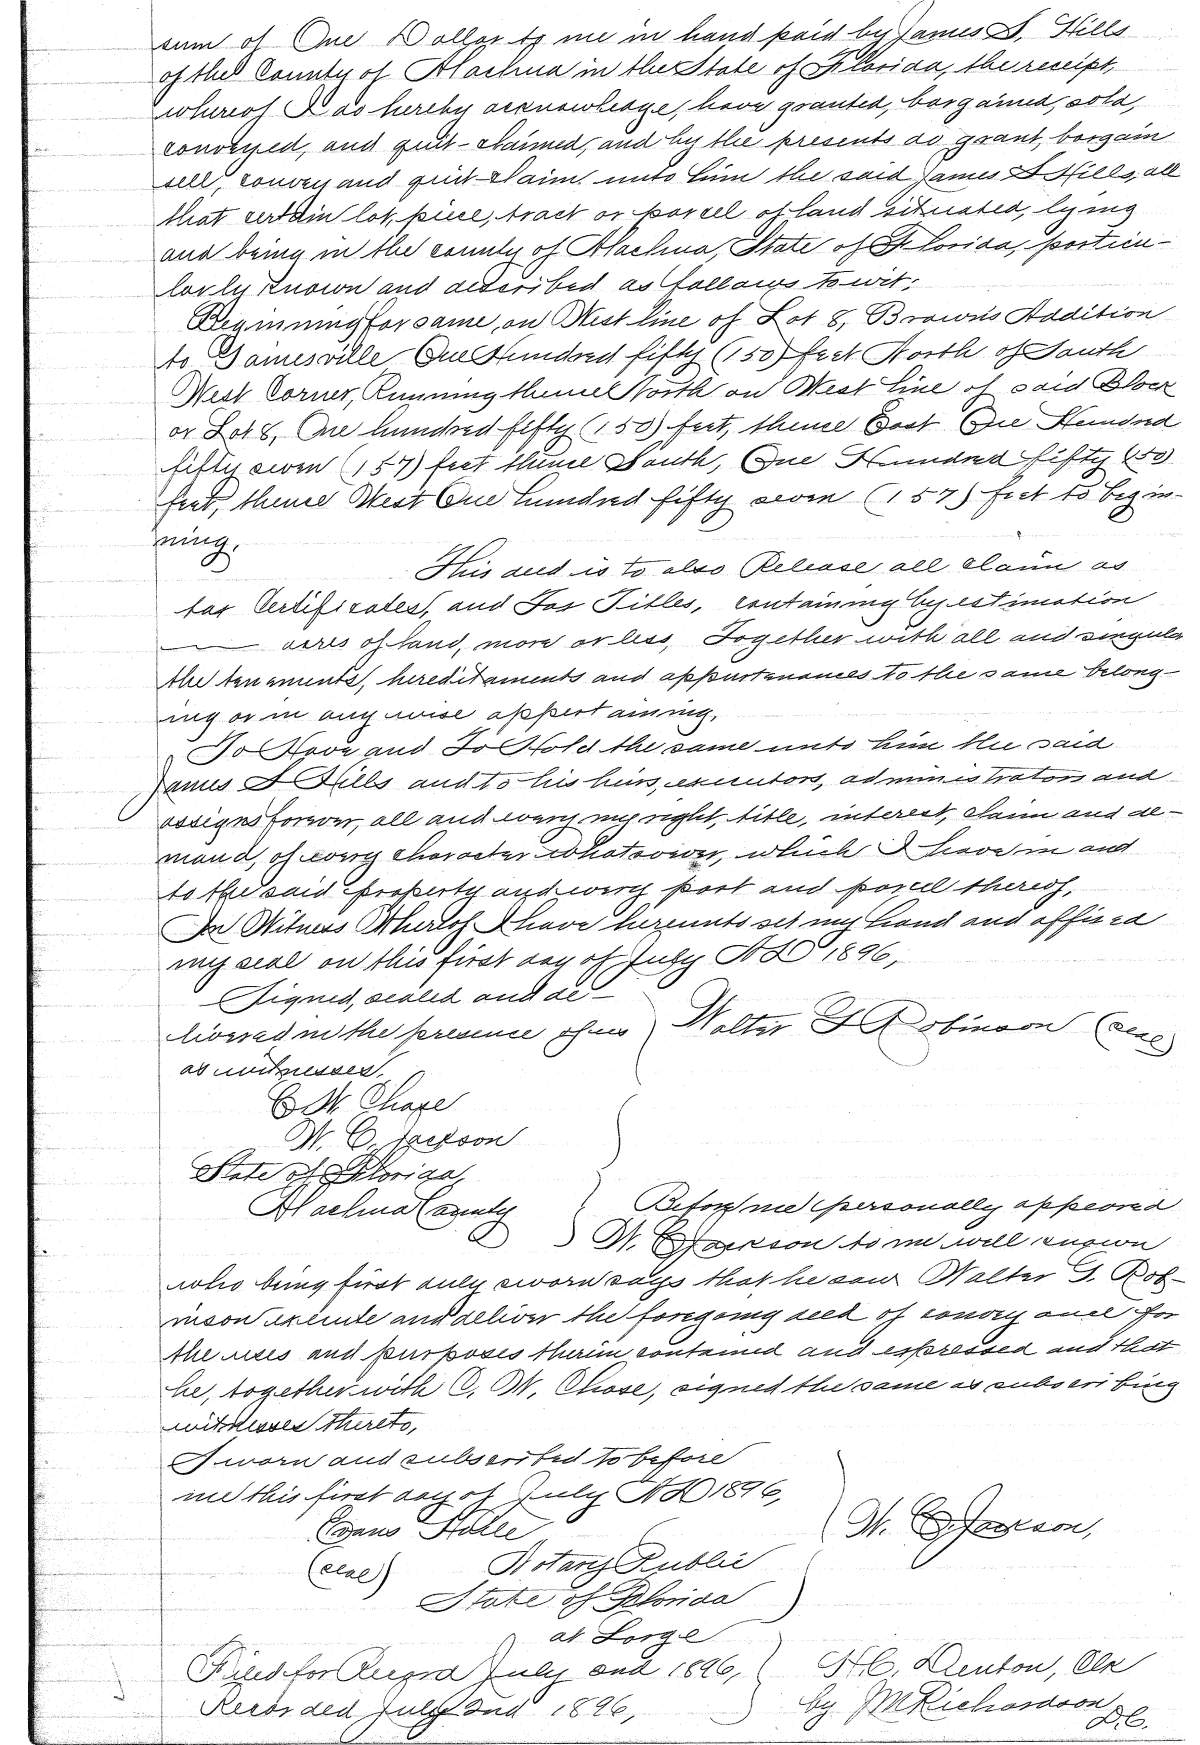 sum of One Dollar to me in hand paid by James S. Hills
of the County of Alachua in the State of Florida, the receipt
whereof I do hereby acknowledge, have granted, bargained, sold,
conveyed, and quit-claimed, and by the presents do grant, bargain
sell, convey and quit-claim unto him the said James S Hills, all
that certain lot, piece, tract or parcel of land situated, lying
and being in the county of Alachua, State of Florida, particu-
larly known and described as follows to wit:
Beginning for same, on West line of Lot 8, Browns Addition
to Gainesville One Hundred fifty (150) feet North of South
West Corner, Running thence North on West line of said Block
or Lot 8, One hundred fifty (150) feet, thence East One Hundred
fifty seven (157) feet thence South, One Hundred fifty (150)
feet, thence West One hundred fifty seven (157) feet to begin-
ning.
This deed is to also Release all claim as
tax Certificates, and Tax Titles, containing by estimation
—— acres of land, more or less, Together with all and singular
the tenements, hereditaments and appurtenances to the same belong-
ing or in any wise appertaining.
To Have and To Hold the same unto him the said
James S Hills and to his heirs, executors, administrators and
assigns forever, all and every my right, title, interest, claim and de-
mand, of every character whatsoever, which I have in and
to the said property and every part and parcel thereof.
In Witness Whereof I have hereunto set my hand and affixed
my seal on this first day of July A D 1896,
Signed, sealed and de-
livered in the presence of us Walter G Robinson (seal)
as witnesses.
C W. Chase
W. C. Jackson
State of Florida,
Alachua County Before me personally appeared
W. C Jackson to me well known
who being first duly sworn says that he saw Walter G. Rob-
inson execute and deliver the foregoing deed of conveyance for
the uses and purposes therein contained and expressed and that
he, together with C. W. Chase, signed the same as subscribing
witnesses thereto,
Sworn and subscribed to before
me this first day of July A D 1896,
Evans Haile W. C. Jackson,
(seal) Notary Public
State of Florida
at Large
Filed for Record July 2nd 1896, H. C. Denton, Clk
Recorded July 2nd 1896, by J M Richardson
D.C.